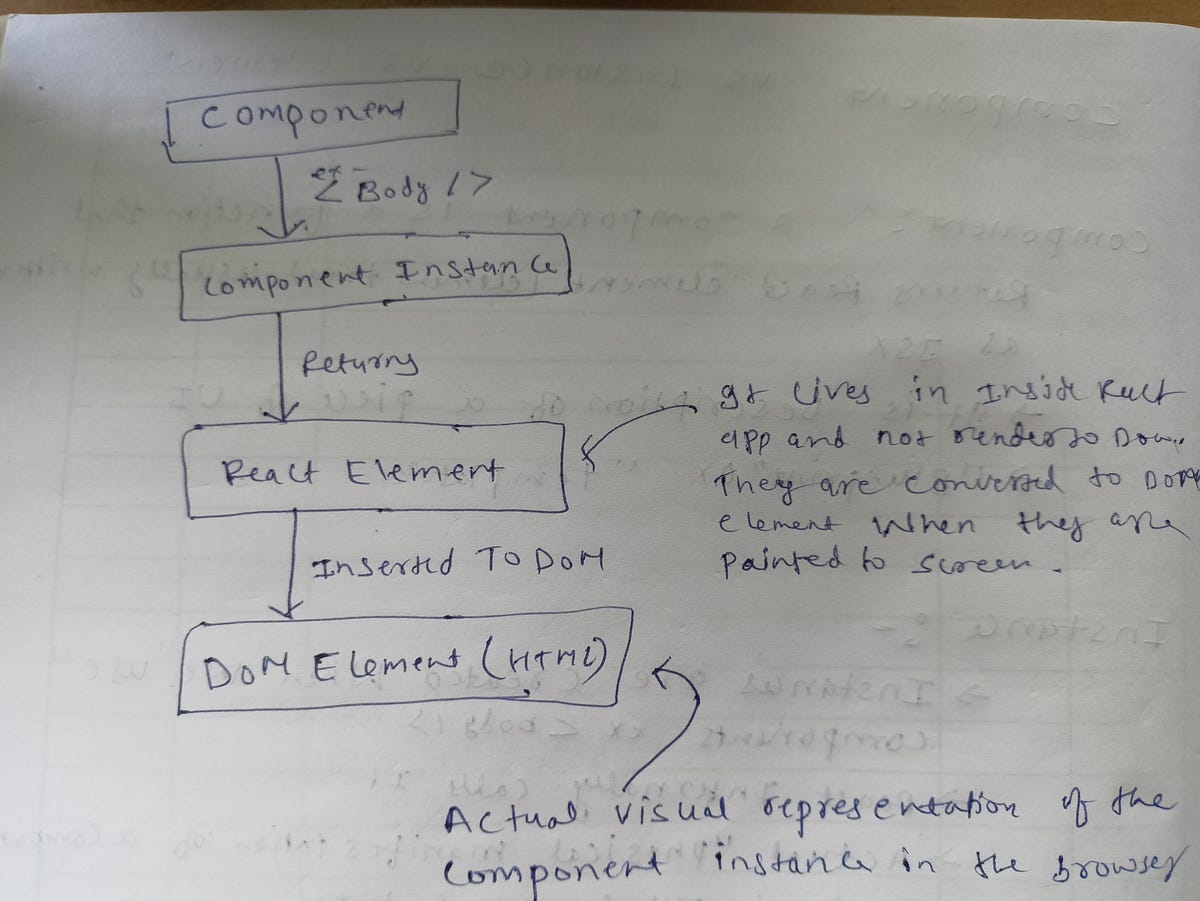 Component
ex -
< Body />
Component Instance
Returns
React Element
It lives in Inside React
app and not render to Dom.
They are converted to Dom
element When they are
painted to screen.
Inserted To DOM
DOM Element (HTML)
Actual visual representation of the
Component instance in the browser